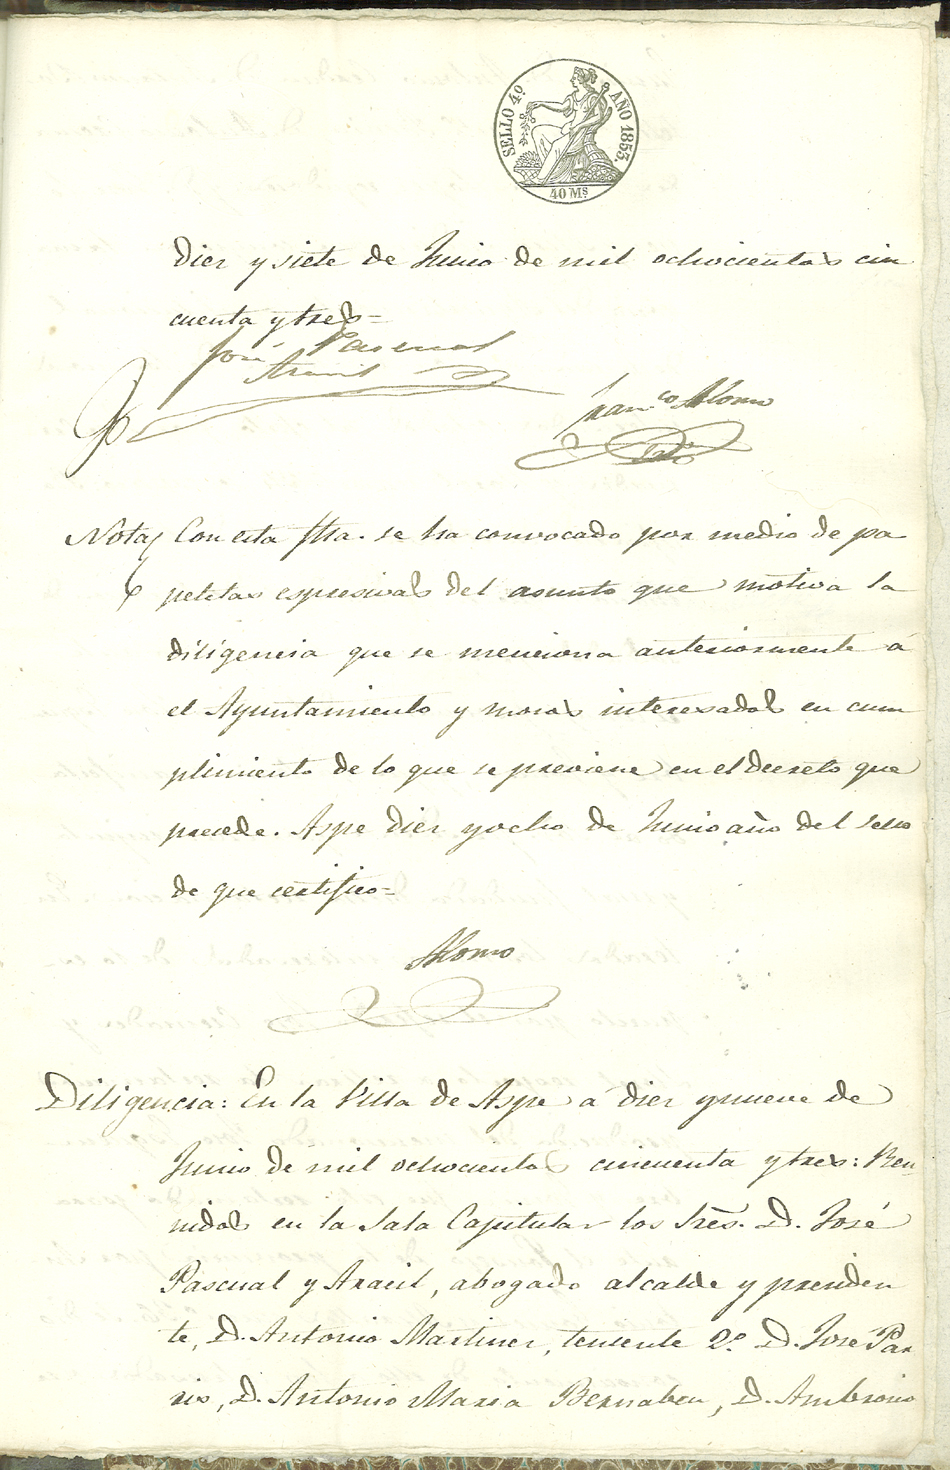 SELLO 4º AÑO 1853.
40 Ms
diez y siete de Junio de mil ochocientos cin
cuenta y tres=
José Pascual
Aracil
Franco Alomo
Nota Con esta fha. se ha convocado por medio de pa
peletas espresivas del asunto que motiva la
diligencia que se menciona anteriormente á
el Ayuntamiento y moros interesados en cum
plimiento de lo que se previene en el decreto que
precede. Aspe diez y ocho de Junio año del sello
de que certifico=
Alomo
Diligencia: En la Villa de Aspe á diez y nueve de
Junio de mil ochocientos cincuenta y tres: Reu-
nidos en la Sala Capitular los Sres. D. José
Pascual y Aracil, abogado alcalde y presiden
te, D. Antonio Martinez, teniente 2º D. José Par
ris, D. Antonio Maria Bernabeu, D. Ambrosio